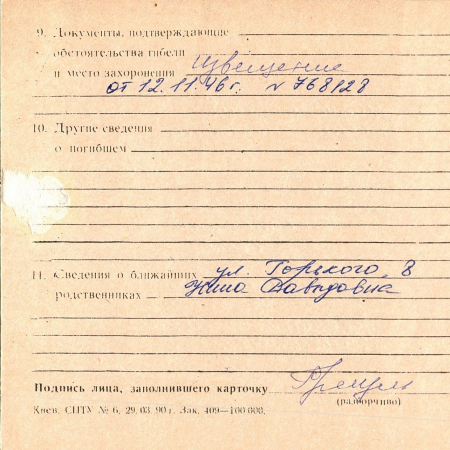 9. Документы, подтверждающие
обстоятельства гибели
и место захоронения Извещение
от 12.11.46 г. № 768/28
10. Другие сведения
о погибшем
11. Сведения о ближайших ул. Горького, 8
родственниках Нина Давыдовна
Подпись лица, заполнившего карточку
(разборчиво)
Киев, СПТУ № 6, 29. 03. 90 г. Зак. 409—100 000.